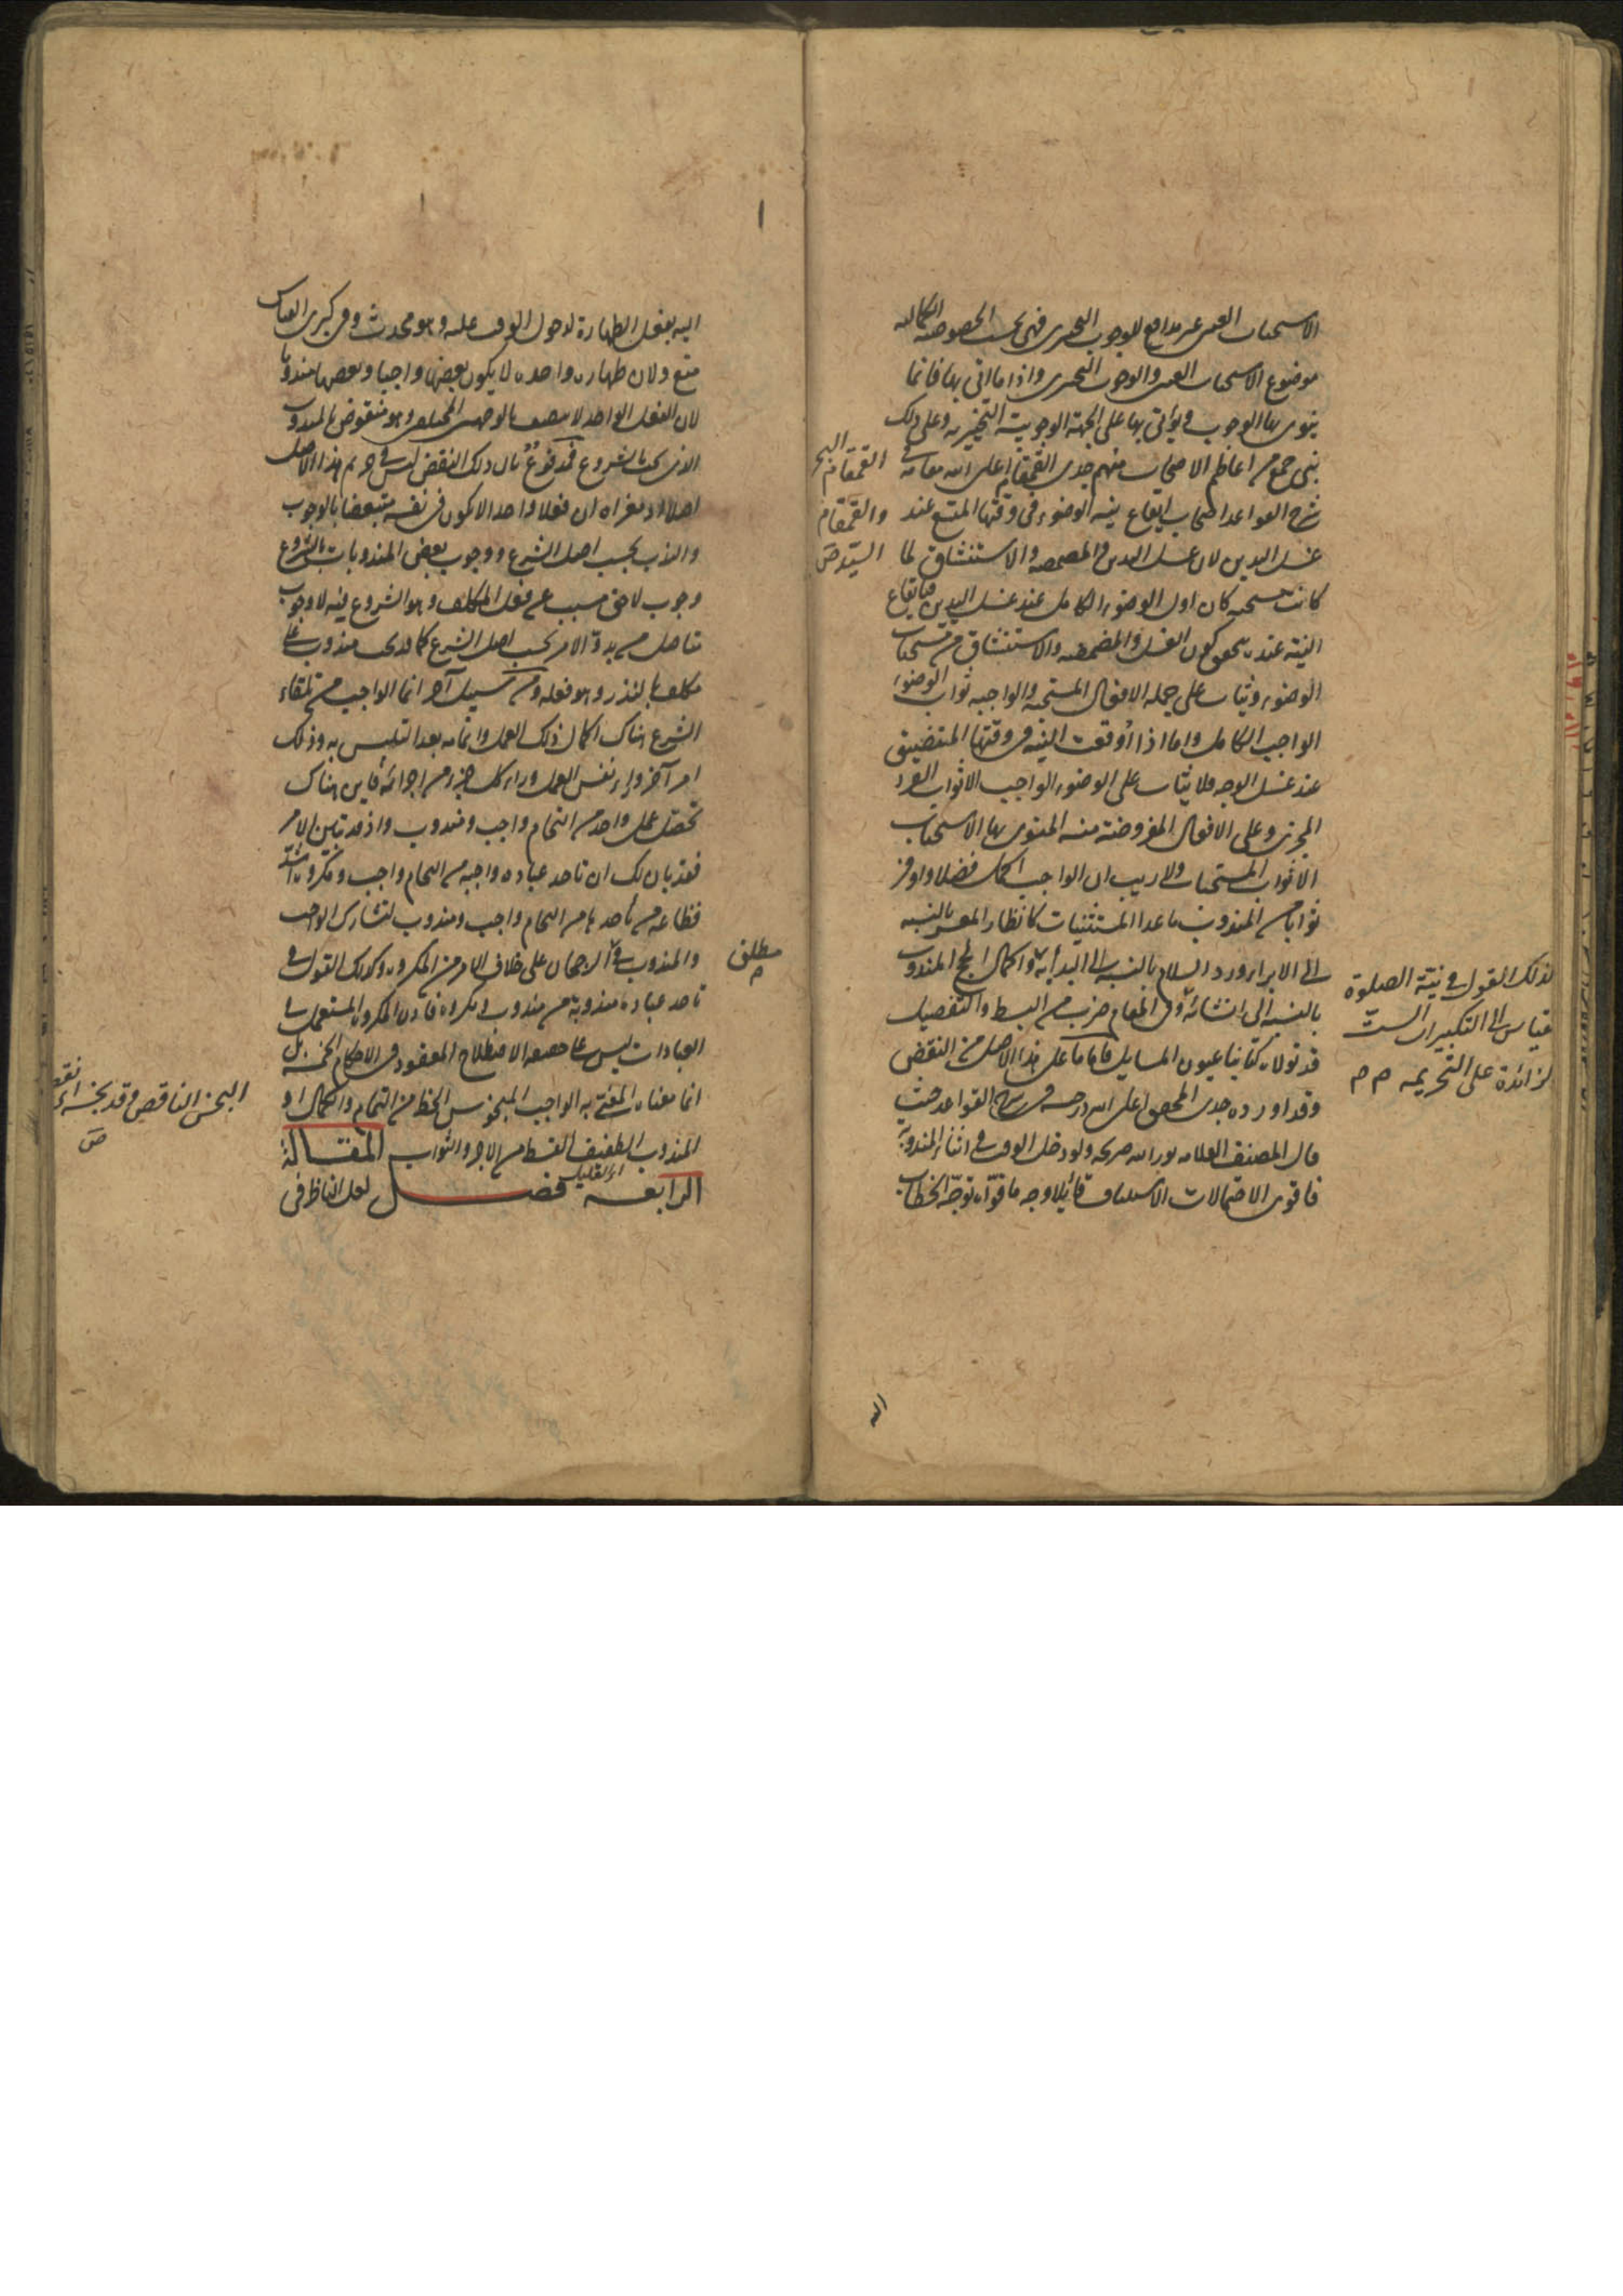 الاستحباب العینی غیر مدافع للوجوب التخییری فهی بحسب الخصوصیة الکمالیه
موضوع الاستحباب العینی والوجوب التخییری واذا ما اتی بها فانما
ینوی بها الوجوب ویؤتی بها علی الجهة الوجوبیة التخییریه وعلی ذلک
بنی جمع من اعاظم الاصحاب منهم جدی القمقام اعلی الله مقامه فی
شرح القواعد استحباب ایقاع نیة الوضوء فی وقتها المتسع عند
غسل الیدین لان غسل الیدین والمضمضه والاستنشاق لما
کانت مستحبه کان اول الوضوء الکامل عند غسل الیدین فبایقاع
النیة عنده یتحقق کون الغسل والمضمضه والاستنشاق من مستحبات
الوضوء ویثاب علی جملة الافعال المستحبه والواجبه ثواب الوضوء
الواجب الکامل واما اذا اوقعت النیة فی وقتها المتضیق
عند غسل الوجه فلا یثاب علی الوضوء الواجب الا ثواب الفرد
المجزی وعلی الافعال المفروضة منه المنوی بها الاستحباب
الا ثواب المستحبات ولا ریب ان الواجب اکمل فضلا واوفر
ثوابا من المندوب ما عدا المستثنیات کانظار المعسر بالنسبه
الی الابراء ورد السلام بالنسبه الی البدأة به واکمال الحج المندوب
بالنسبه الی انشائه وفی المقام ضرب من البسط والتفصیل
قد تولاه کتابنا عیون المسایل فاما ما علی هذا الاصل من النقض
وقد اورده جدی المحقق اعلی الله درجته فی شرح القواعد حیث
قال المصنف العلامه نور الله ضریحه ولو دخل الوقت فی اثناء المندوبة
فاقوی الاحتمالات الاستیناف قائلا وجه ما قواه توجه الخطاب
القمقام البحر
والقمقام
السید ص
کذلک القول فی نیة الصلوة
بقیاس الی التکبیرات الست
الزائدة علی التحریمه م م
الیه
الیه بفعل الطهارة لدخول الوقت علیه وهو محدث وفی کبری القیاس
منع ولان طهارة واحده لا یکون بعضها واجبا وبعضها مندوبا
لان الفعل الواحد لا یتصف بالوجهین المختلفین وهو منقوض بالمندوب
الذی یجب بالشروع فمدفوع بان ذلک النقض لیس فی حریم هذا الاصل
اصلا اذ مغزاه ان فعلا واحدا لا یکون فی نفسه متبعضا بالوجوب
والندب بحسب اصل الشرع ووجوب بعض المندوبات بالشروع
وجوب لاحق مسبب عن فعل المکلف وهو الشروع فیه لا وجوب
متاصل من بدو الامر بحسب اصل الشرع کما قد یجب مندوب علی
مکلف بالنذر وهو فعله ومن سبیل آخر انما الواجب من تلقاء
الشرع هناک اکمال ذلک العمل واتمامه بعد التلبس به وذلک
امر آخر وراء نفس العمل وراء کل جزء من اجزائه فاین هناک
تحصل عمل واحد من التحام واجب ومندوب واذ قد تبین الامر
فقد بان لک ان تاحد عباده واجبه من التحام واجب ومکروه اشد
فظاعه من تأحدها من التحام واجب ومندوب لتشارک الواجب
والمندوب فی الرجحان علی خلاف الامر من المکروه وکذلک القول فی
تاحد عباده مندوبة من مندوب ومکروه فاذن المکروه المستعمل فی
العبادات لیس علی حقیقة الاصطلاح المعقود فی الاحکام الخمسة بل
انما معناه المعنی به الواجب المبخوس الحظ من التمام والکمال او
المندوب الطفیف القسط من الاجر والثواب المقالة
الرابعه فصل لعل الناظر فی
ای القلیل
مطلق
م
البخس الناقص وقد بخسه ای نقصه
ص